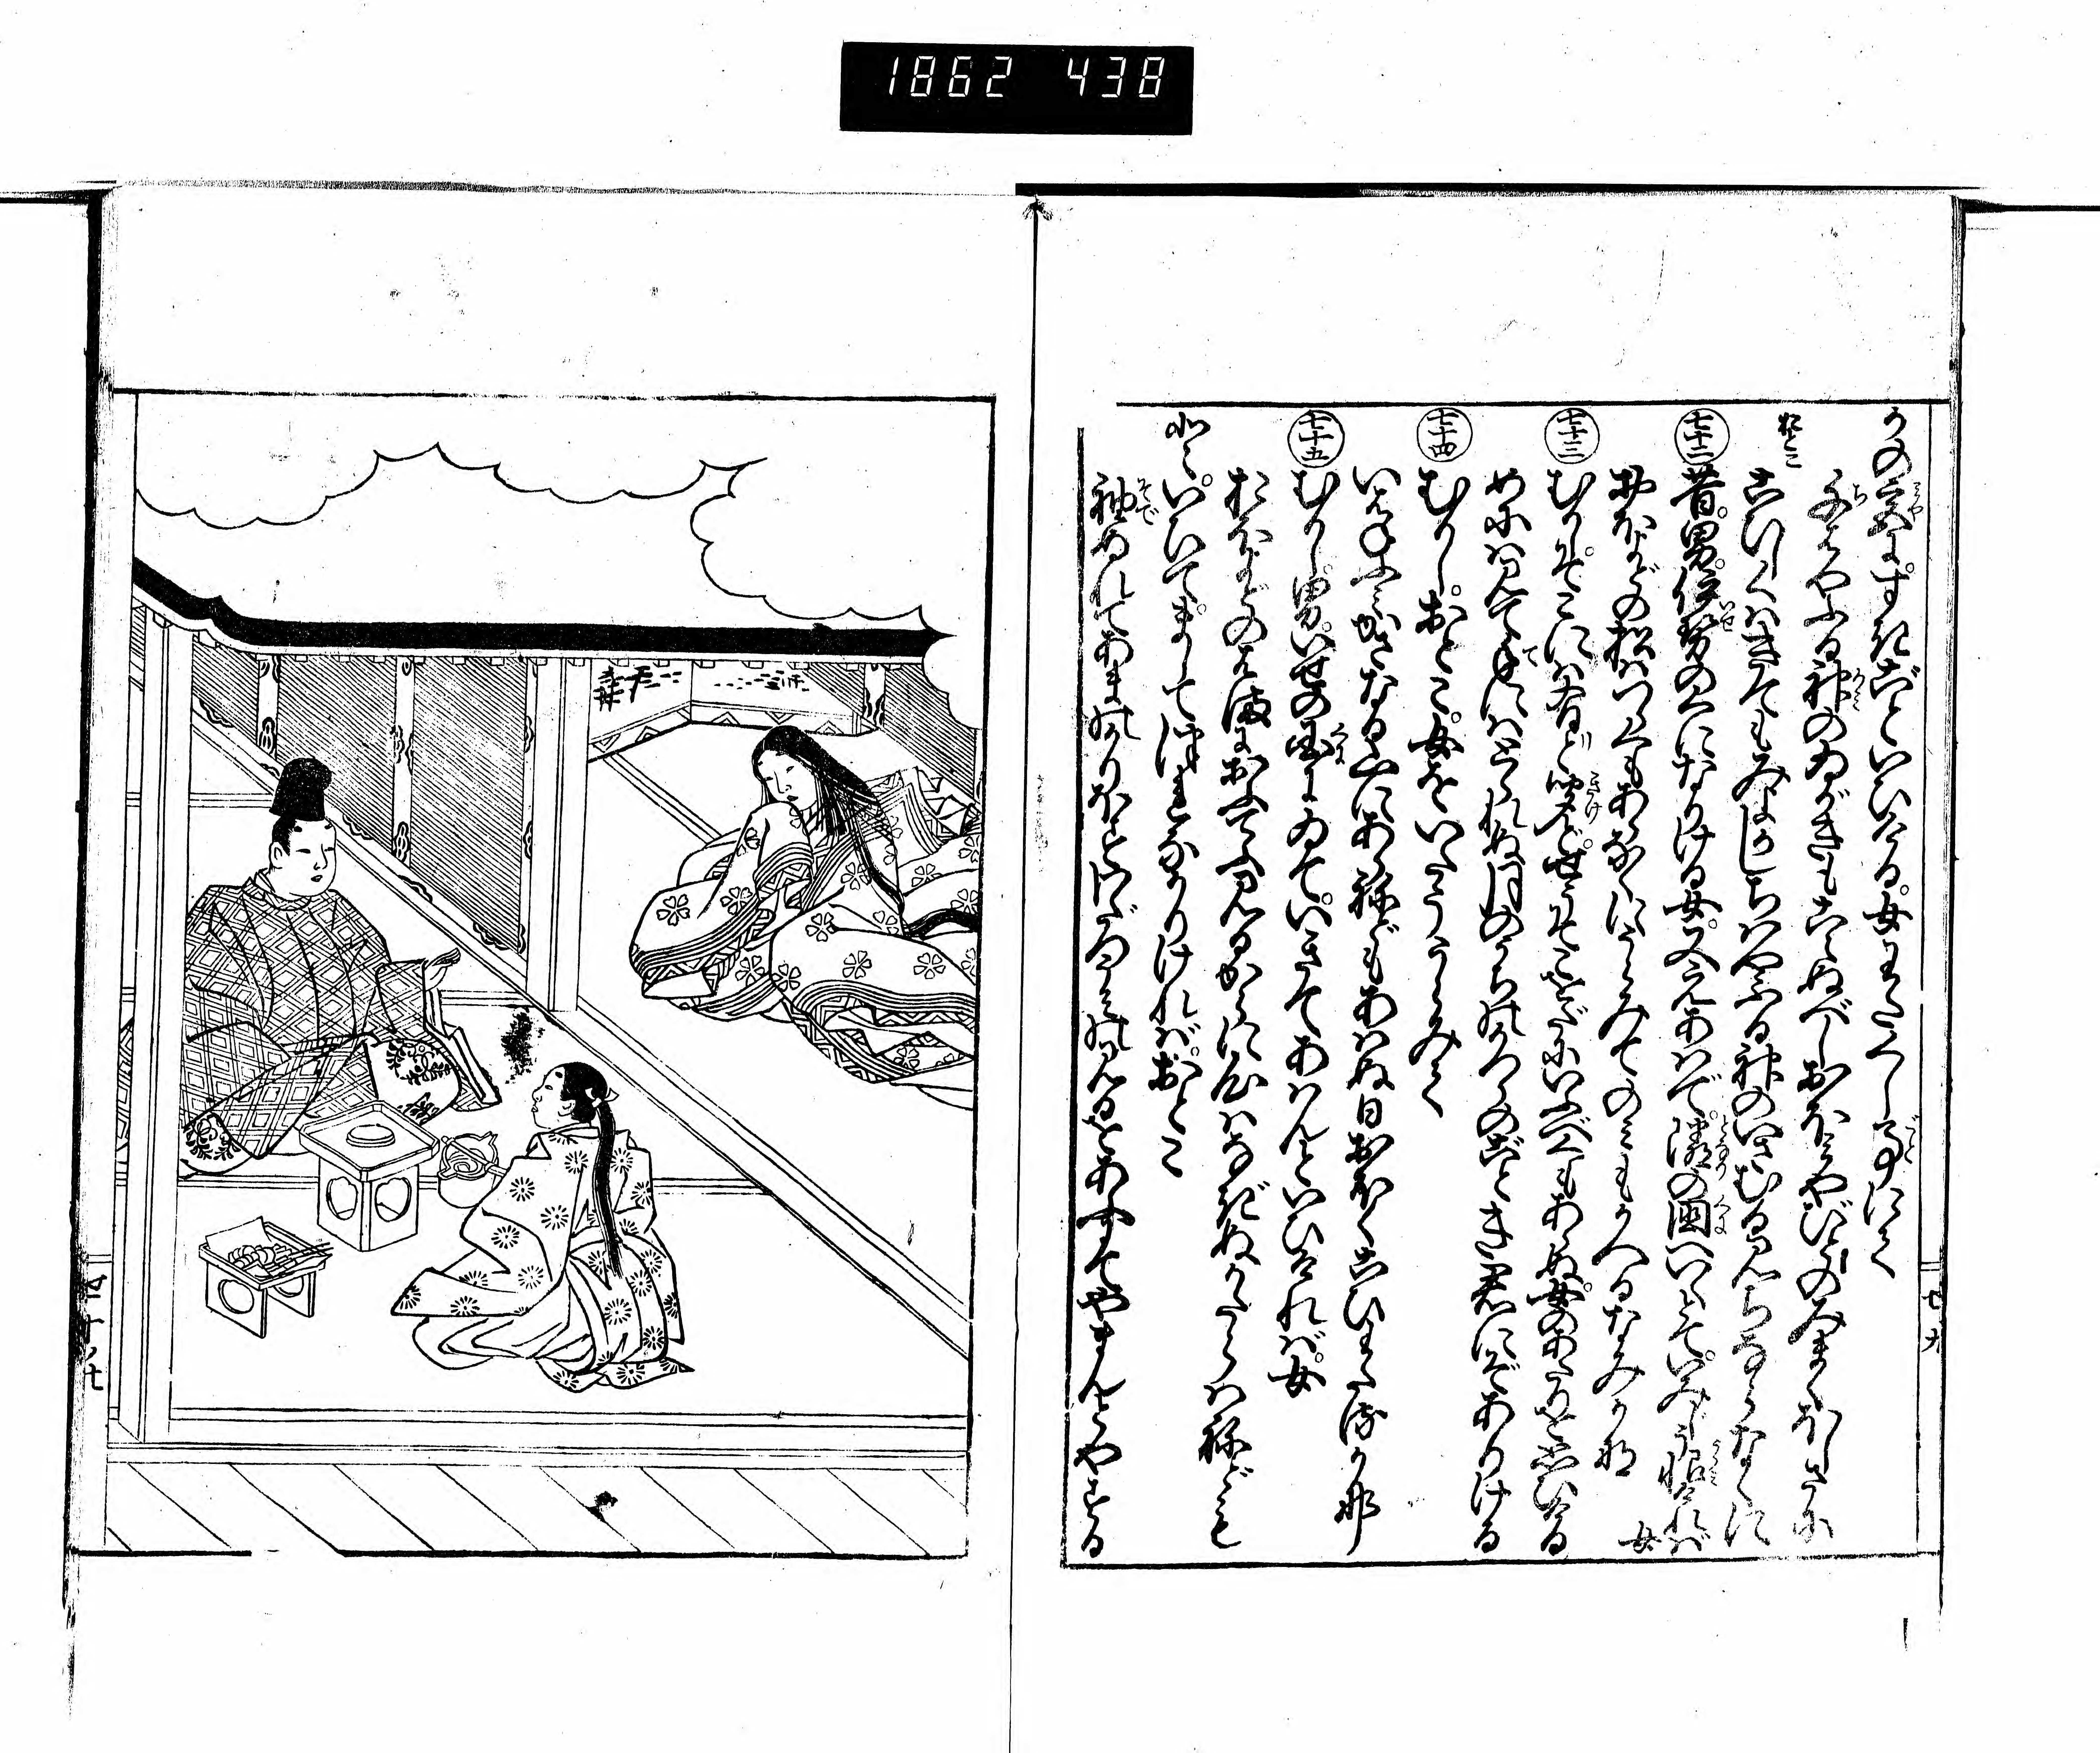 1862 438
かの宮にすきごといひける女わたくし事にて
千はやふる神のゐがきもこえぬべし大みや人のみまくほしさに
おとこ
こひしくはきてもみよかしちはやふる神のいさむる道ならなくに
七十二 昔男伊勢の国になりける女又えあはで隣の国へいくとていみじう恨ければ
女
大よどの松はつらくもあらなくにうらみてのみもかへるなみかな
七十三 むかしそこには有ときけどせうそこをだにいふべくもあらぬ女のあたりを思ひける
めには見て手にはとられぬ月のうちのかつらのごとき君にぞありける
七十四 むかしおとこ女をいたううらみて
いはねふみかさなる山にあらねどもあはぬ日おほくこひわたるかな
七十五 むかし男いせの国にゐていきてあはんといひければ女
おほよどのはまにおふてふみるからに心はなぎぬかたらはねども
といひてましてつれなかりければおとこ
袖ぬれてあまのかりほすわたつうみのみるをあふにてやまんとやする
七十九
七十ノ七